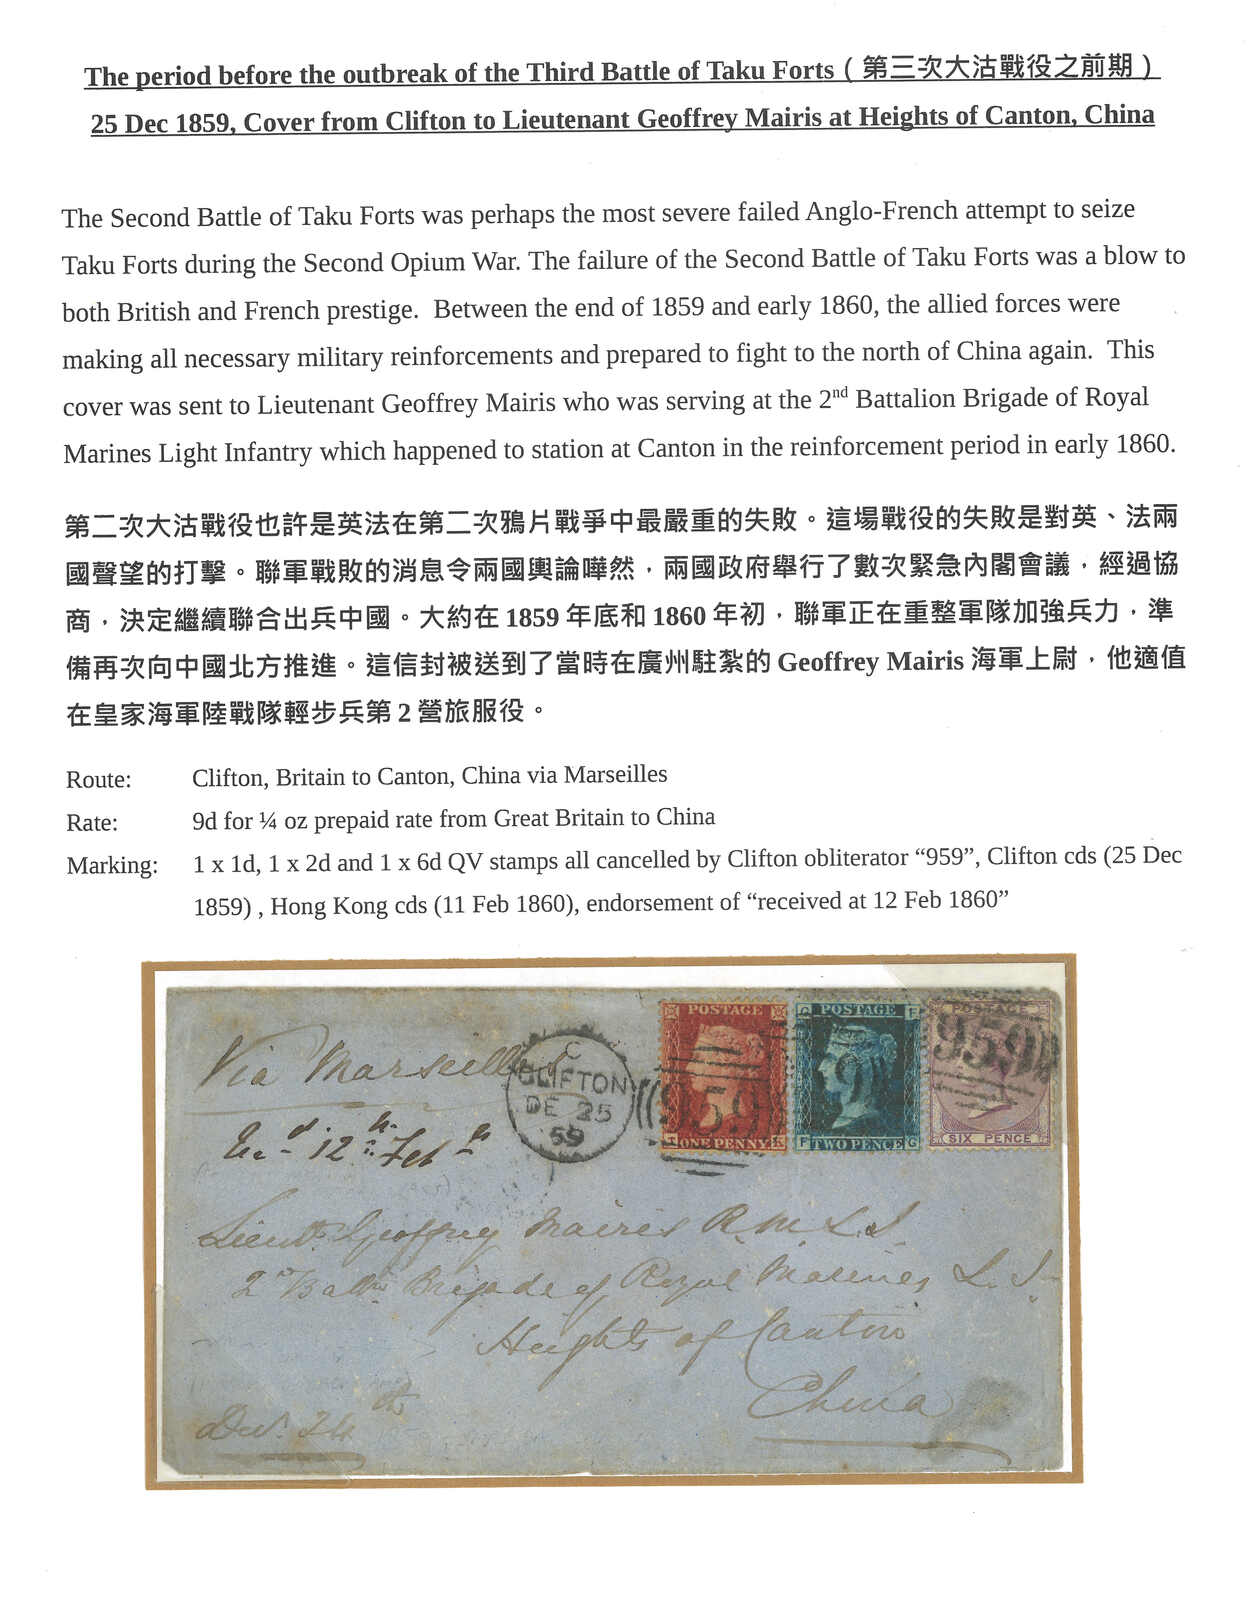 The period before the outbreak of the Third Battle of Taku Forts（第三次大沽戰役之前期）
25 Dec 1859, Cover from Clifton to Lieutenant Geoffrey Mairis at Heights of Canton, China
The Second Battle of Taku Forts was perhaps the most severe failed Anglo-French attempt to seize
Taku Forts during the Second Opium War. The failure of the Second Battle of Taku Forts was a blow to
both British and French prestige.  Between the end of 1859 and early 1860, the allied forces were
making all necessary military reinforcements and prepared to fight to the north of China again.  This
cover was sent to Lieutenant Geoffrey Mairis who was serving at the 2nd Battalion Brigade of Royal
Marines Light Infantry which happened to station at Canton in the reinforcement period in early 1860.
第二次大沽戰役也許是英法在第二次鴉片戰爭中最嚴重的失敗。這場戰役的失敗是對英、法兩
國聲望的打擊。聯軍戰敗的消息令兩國輿論嘩然，兩國政府舉行了數次緊急內閣會議，經過協
商，決定繼續聯合出兵中國。大約在 1859 年底和 1860 年初，聯軍正在重整軍隊加強兵力，準
備再次向中國北方推進。這信封被送到了當時在廣州駐紮的 Geoffrey Mairis 海軍上尉，他適值
在皇家海軍陸戰隊輕步兵第 2 營旅服役。
Route: Clifton, Britain to Canton, China via Marseilles
Rate: 9d for ¼ oz prepaid rate from Great Britain to China
Marking: 1 x 1d, 1 x 2d and 1 x 6d QV stamps all cancelled by Clifton obliterator “959”, Clifton cds (25 Dec
1859) , Hong Kong cds (11 Feb 1860), endorsement of “received at 12 Feb 1860”
POSTAGE
ONE PENNY
959
G POSTAGE F
F TWO PENCE G
9
POSTAGE
SIX PENCE
959
C
CLIFTON
DE 25
59
Via Marseilles
Rec^d 12th Feb
Lieut. Geoffrey Mairis R.M.L.I.
2nd Battn. Brigade of Royal Marines L. I.
Heights of Canton
China
Dec. 24th